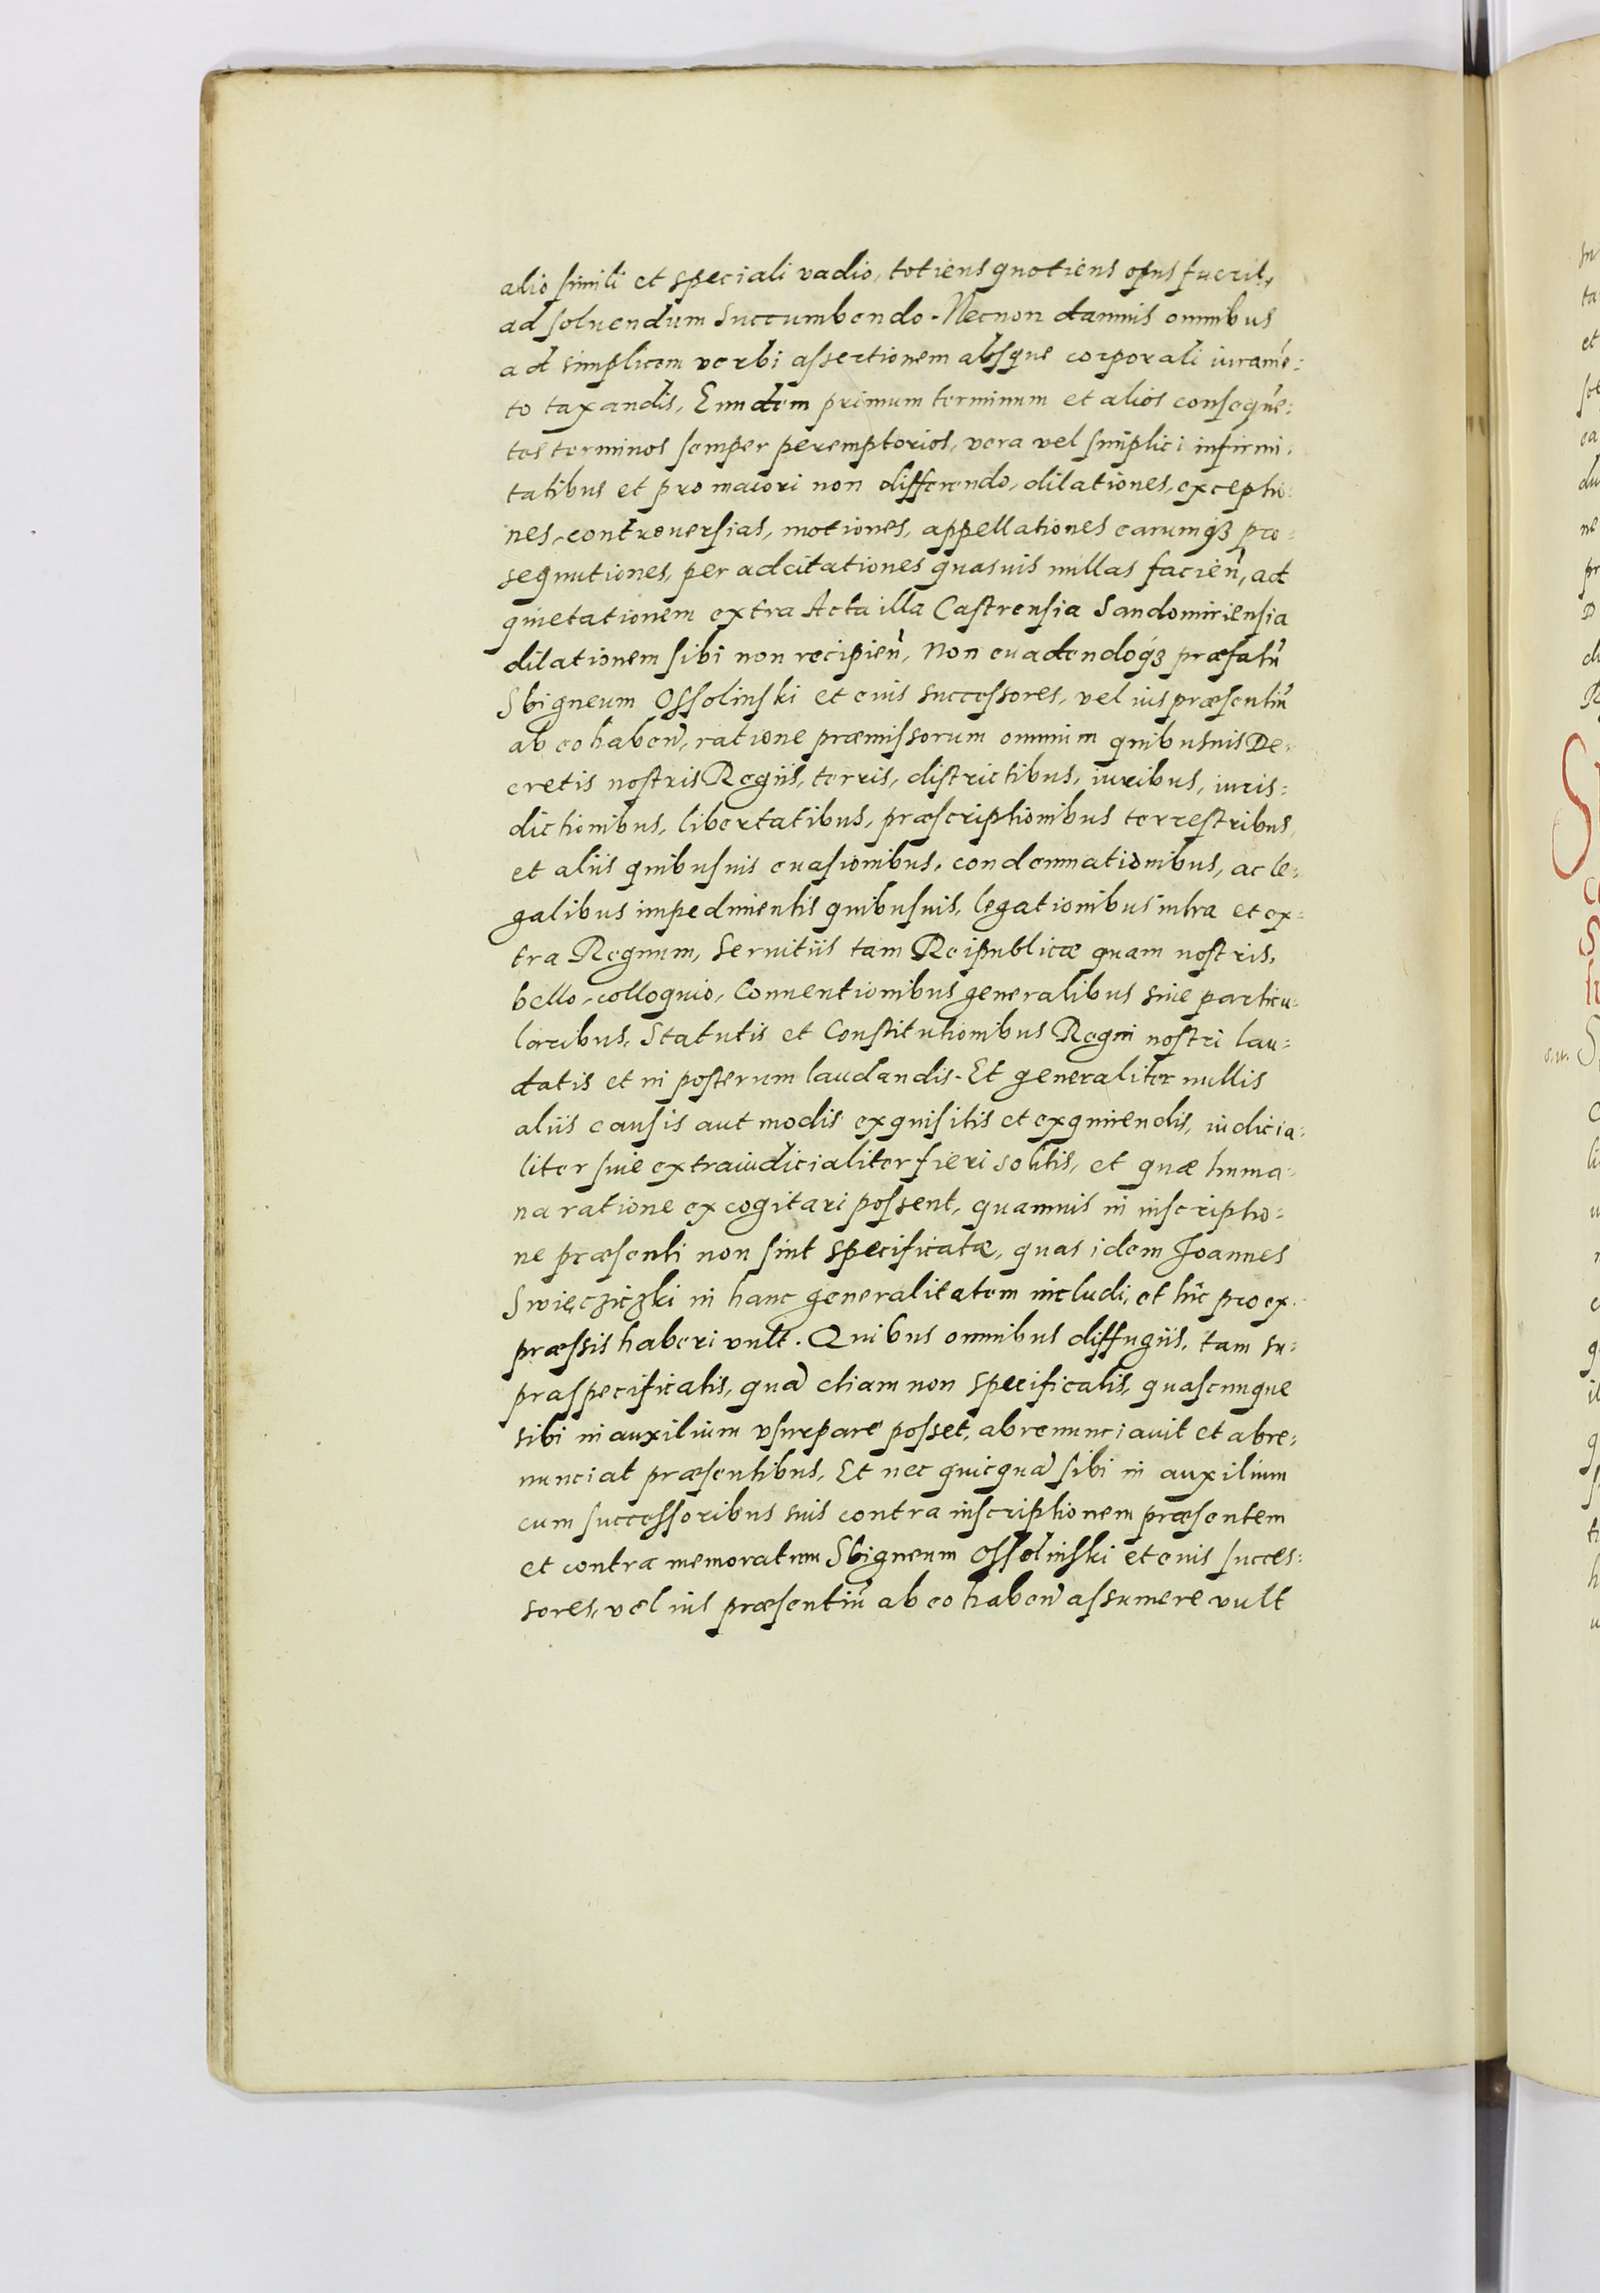 alio simili et speciali vadio, totiens quotiens opus fuerit,
ad soluendum succumbendo. Necnon damnis omnibus
ad simplicem verbi assertionem absque corporali iuramē:
to taxandis, Eundem primum terminum et alios consequē:
tes terminos semper peremptorios, vera vel simplici infirmi:
tatibus et pro maiori non differendo, dilationes, exceptio:
nes, controuersias, motiones, appellationes earumqꝫ pro:
sequutiones, per adcitationes quasuis nullas facien̄, ad
quietationem extra Acta illa Castrensia Sandomiriensia
dilationem sibi non recipien̄, Non euadendoqꝫ præfatū
Sbigneum Ossolinski et euis successores, vel ius præsentiū
ab eo haben̄, ratione præmissorum omnium quibusuis De:
cretis nostris Regiis, terris, districtibus, iuribus, iuris:
dictionibus, libertatibus, præscriptionibus terrestribus,
et aliis quibusuis euasionibus, condemnationibus, ac le:
galibus impedimentis quibusuis, legationibus intra et ex:
tra Regnum, seruitiis tam Reipublicæ quam nostris,
bello, colloquio, Conuentionibus generalibus siue particu:
laribus, Statutis et Constitutionibus Regni nostri lau:
datis et in posterum laudandis. Et generaliter nullis
aliis causis aut modis exquisitis et exquirendis, iudicia:
liter siue extraiudicialiter fieri solitis, et quæ huma:
na ratione excogitari possent, quamuis in inscriptio:
ne præsenti non sint specificatæ, quas idem Joannes
Swięcziczki in hanc generalitatem includi, et hīc pro ex:
præssis haberi vult. Quibus omnibus diffugiis, tam su:
praspecificatis, quā etiam non specificatis, quascunque
sibi in auxilium vsurpare posset, abrenunciauit et abre:
nunciat præsentibus, Et nec quicquā sibi in auxilium
cum successoribus suis contra inscriptionem præsentem
et contra memoratum Sbigneum Ossolinski et euis succes:
sores, vel ius præsentiū ab eo haben̄ assumere vult